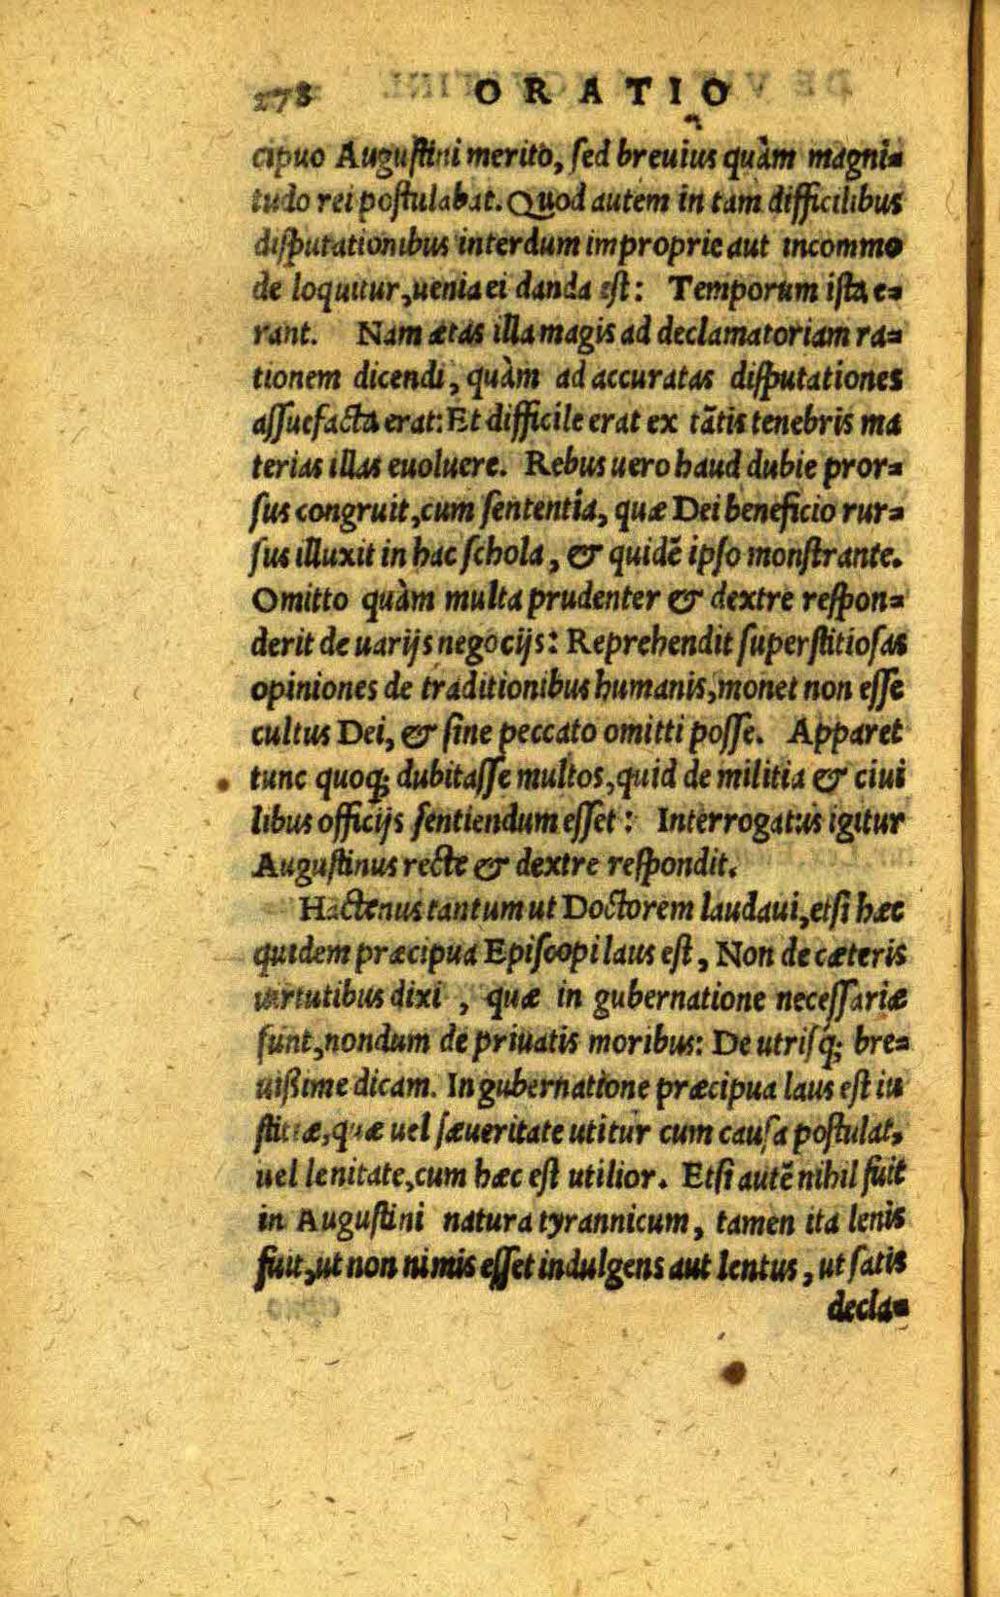 278 ORATIO
cipuo Augustini merito, sed breuius quàm magni=
tudo rei postulabat. Quod autem in tam difficilibus
disputationibus interdum improprie aut incommo
de loquitur, uenia ei danda est: Temporum ista e=
rant. Nam ætas illa magis ad declamatoriam ra=
tionem dicendi, quàm ad accuratas disputationes
assuefacta erat: Et difficile erat ex tãtis tenebris ma
terias illas euoluere. Rebus uero haud dubie pror=
sus congruit, cum sententia, quæ Dei beneficio rur=
sus illuxit in hac schola, & quidẽ ipso monstrante.
Omitto quàm multa prudenter & dextre respon=
derit de uarijs negocijs: Reprehendit superstitiosas
opiniones de traditionibus humanis, monet non esse
cultus Dei, & sine peccato omitti posse. Apparet
tunc quoq; dubitasse multos, quid de militia & ciui
libus officijs sentiendum esset: Interrogatus igitur
Augustinus recte & dextre respondit.
Hactenus tantum ut Doctorem laudaui, etsi hæc
quidem præcipua Episcopi laus est, Non de cæteris
uirtutibus dixi, quæ in gubernatione necessariæ
sunt, nondum de priuatis moribus: De utrisq; bre=
uißime dicam. In gubernatione præcipua laus est iu
stitiæ, quæ uel sæueritate utitur cum causa postulat,
uel lenitate, cum hæc est utilior. Etsi autẽ nihil fuit
in Augustini natura tyrannicum, tamen ita lenis
fuit, ut non nimis esset indulgens aut lentus, ut satis
decla=